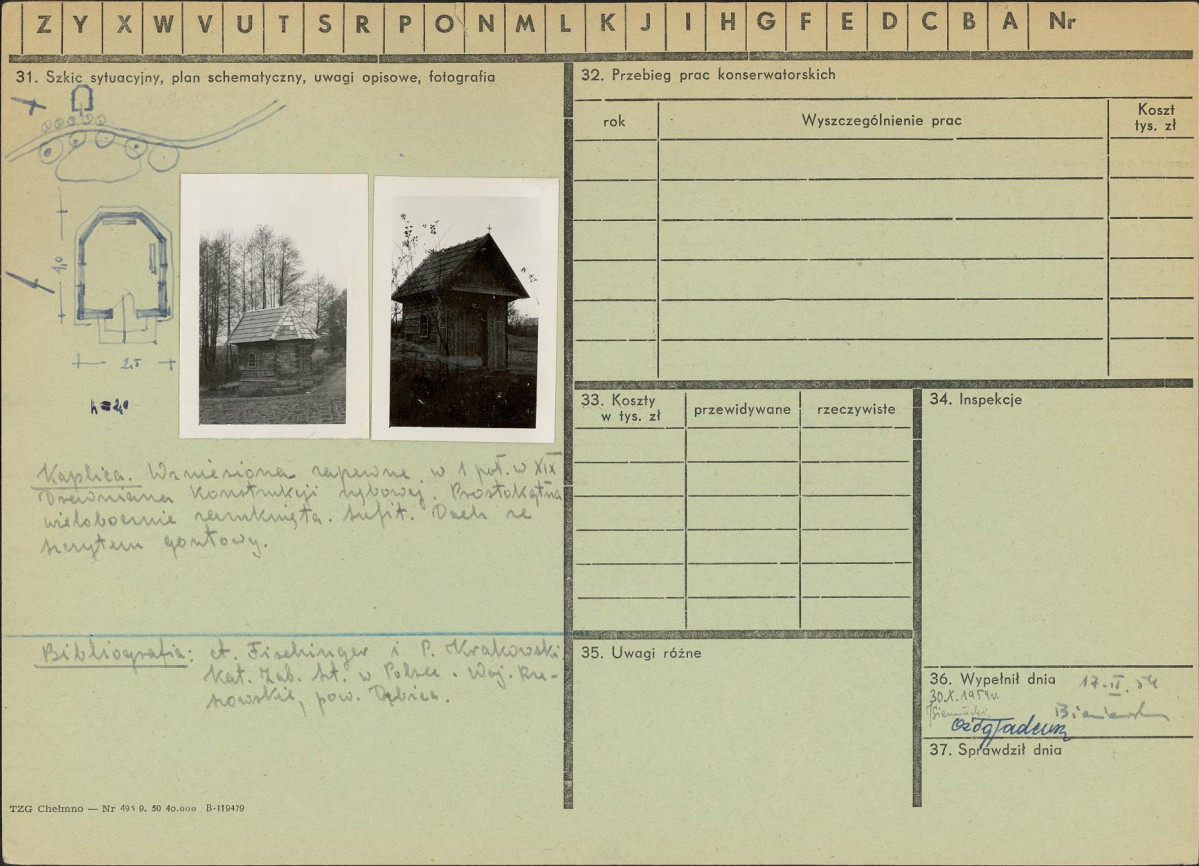 Z Y X W V U T S R P O N M L K J I H G F E D C B A Nr
31. Szkic sytuacyjny, plan schematyczny, uwagi opisowe, fotografia
4,0
2,5
h = 2,0
Kaplica. Wzniesiona zapewne w 1 poł. w XIX
Drewniana konstrukcji zrębowej. Prostokątna
wielobocznie zamknięta. Sufit. Dach ze
szczytem gontowy.
Bibliografia: A. Fischinger i P. Krakowski
Kat. Zab. Szt. w Polsce. Woj. Rze-
szowskie, pow. Dębica.
TZG Chełmno — Nr 495 9. 50 40.000 B-119479
32. Przebieg prac konserwatorskich
rok Wyszczególnienie prac Koszt tys. zł
33. Koszty w tys. zł przewidywane rzeczywiste
34. Inspekcje
35. Uwagi różne
36. Wypełnił dnia 17.II.54
30.X.1959r.
Ożóg Tadeusz
37. Sprawdził dnia